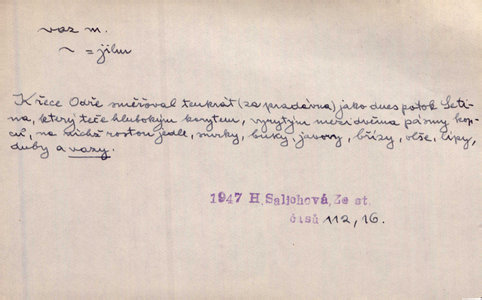 vaz m.
~ = jilm
K řece Odře směřoval tenkrát (za pradávna) jako dnes potok Seti-
na, který teče hlubokým korytem, vyrytým mezi dvěma pásmy kop-
ců, na nichž rostou jedle, smrky, buky, javory, břízy, olše, lípy,
duby a vazy.
1947 H. Salichová, Ze st.
časů 112, 16.